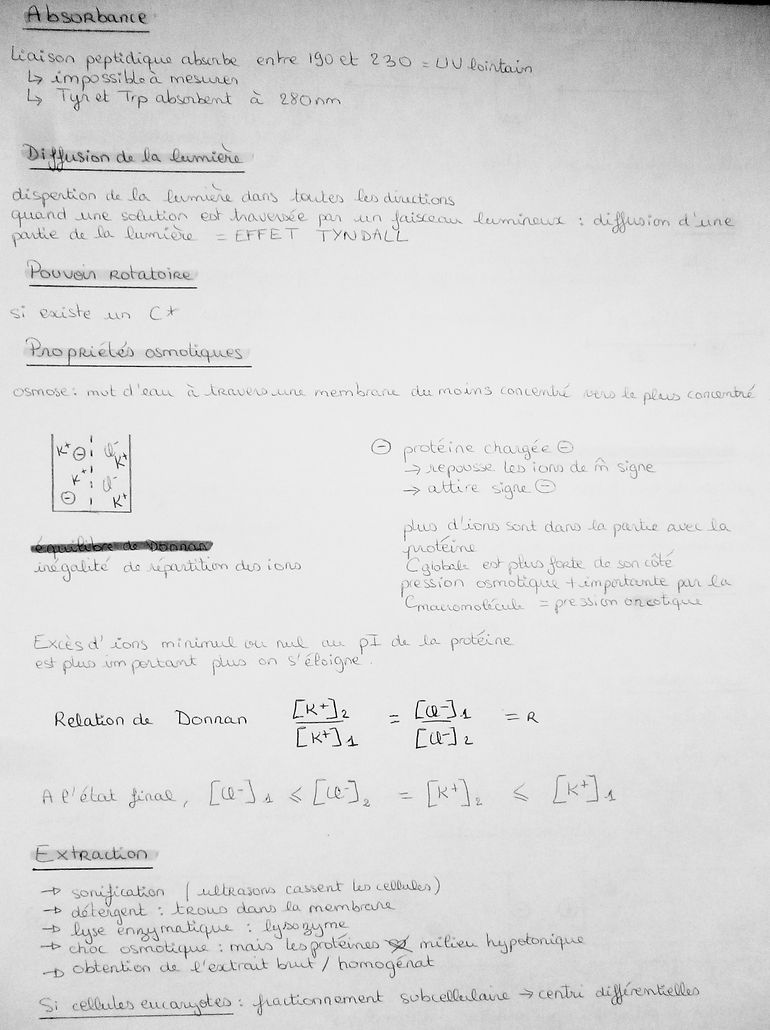 Absorbance
Liaison peptidique absorbe entre 190 et 230 = UV lointain
↳ impossible à mesurer
↳ Tyr et Trp absorbent à 280nm
Diffusion de la lumière
dispertion de la lumière dans toutes les directions
quand une solution est traversée par un faisceau lumineux : diffusion d'une
partie de la lumière = EFFET TYNDALL
Pouvoir rotatoire
si existe un C*
Propriétés osmotiques
osmose : mvt d'eau à travers une membrane du moins concentré vers le plus concentré
K+ ⊖ Cl- K+
K+ Cl-
⊖ K+
⊖ protéine chargée ⊖
→ repousse les ions de m̂ signe
→ attire signe ⊖
plus d'ions sont dans la partie avec la
protéine
Cglobale est plus forte de son côté
pression osmotique + importante par la
Cmacromolécule = pression oncotique
équilibre de Donnan
inégalité de répartition des ions
Excès d'ions minimul ou nul au pI de la protéine
est plus important plus on s'éloigne.
Relation de Donnan [K+]2 / [K+]1 = [Cl-]1 / [Cl-]2 = R
A l'état final, [Cl-]1 ⩽ [Cl-]2 = [K+]2 ⩽ [K+]1
Extraction
→ sonification (ultrasons cassent les cellules)
→ détergent : trous dans la membrane
→ lyse enzymatique : lysozyme
→ choc osmotique : mais les protéines milieu hypotonique
→ obtention de l'extrait brut / homogénat
Si cellules eucaryotes : fractionnement subcellulaire → centri différentielles